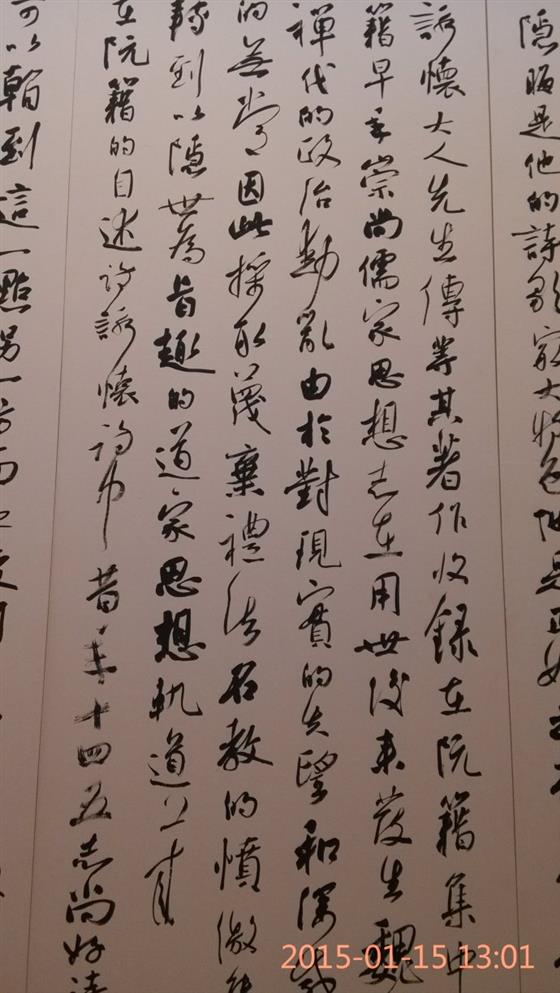 隱晦是他的詩歌最大特色但是正如
詠懷大人先生傳等其著作收錄在阮籍集中
籍早年崇尚儒家思想志在用世後來發生魏
禪代的政治動亂由於對現實的失望和深感
的無常因此採取蔑棄禮法名教的憤激態
轉到以隱世為旨趣的道家思想軌道上來
在阮籍的自述詩詠懷詩中昔年十四五志尚好
可以到這一點另一方面
2015-01-15 13:01